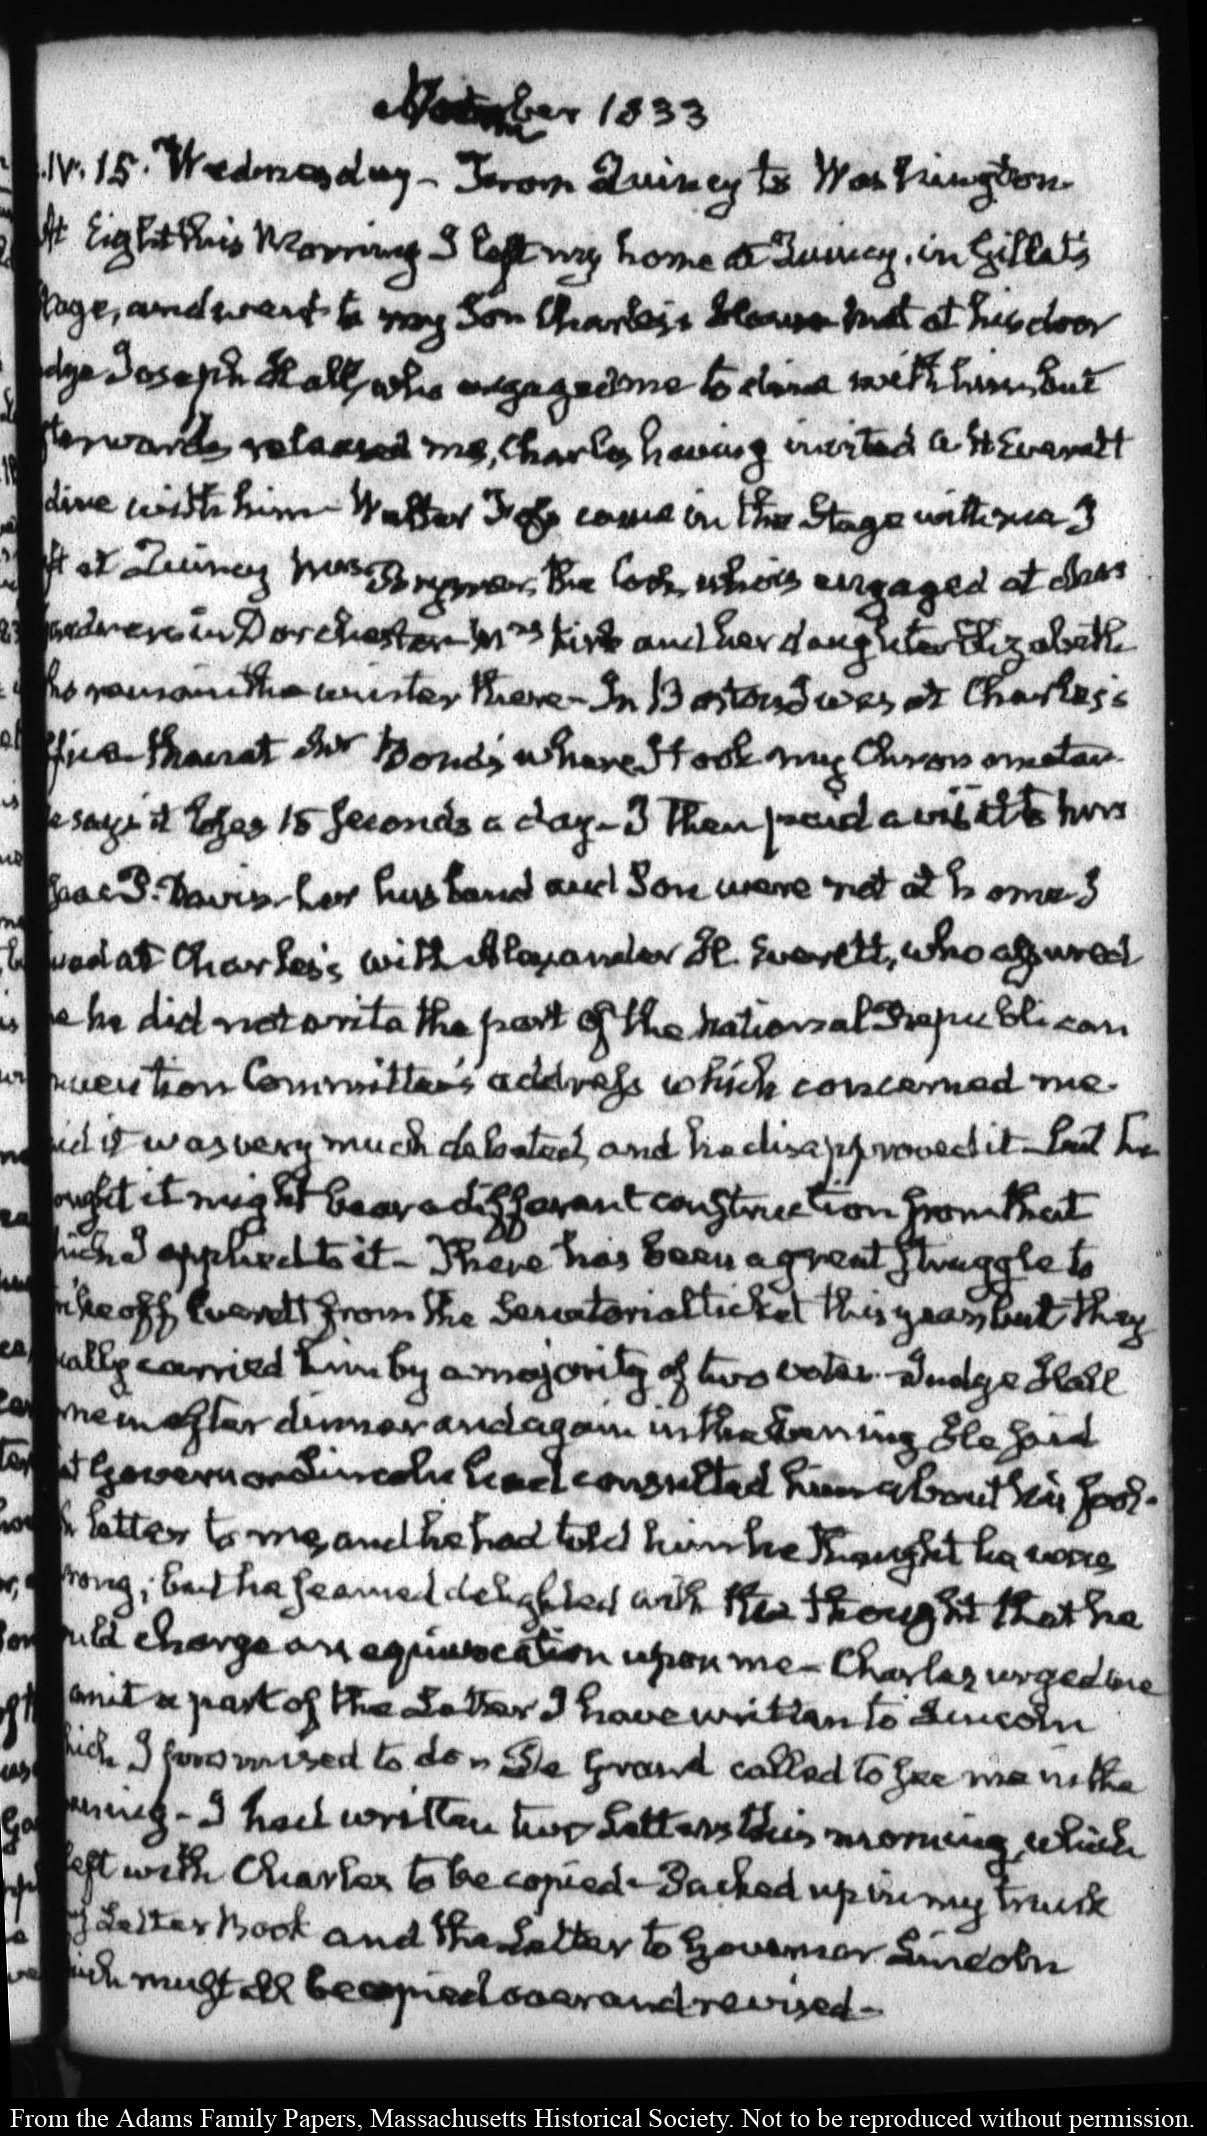 November 1833
IV. 15. Wednesday — From Quincy to Washington.
At Eight this Morning I left my home at Quincy, in Gillett's
tage, and went to my Son Charles's House met at his door
dge Joseph Hall, who engaged me to dine with him, but
terwards released me, Charles having invited A H Everett
dine with him — Walter come in the Stage with me I
ft at Quincy Mrs the Cook, who is engaged at
in Dorchester — Mrs Kirk and her daughter Elizabeth
ho remain the winter there — In Boston I was at Charles's
ffice — then at Mr Bond's where I took my Chronometer
e says it loses 15 seconds a day — I then paid a visit to Mrs
saac P. Davis — her husband and Son were not at home I
ined at Charles's with Alexander H. Everett, who assured
e he did not write the part of the National Republican
nvention Committee's address which concerned me.
aid it was very much debated, and he disapproved it — but he
ought it might bear a different construction from that
hich I applied to it — There has been a great struggle to
rike off Everett from the Senatorial ticket this year, but they
nally carried him by a majority of two votes — Judge Hall
me in after dinner and again in the Evening He said
at Governor Lincoln had consulted him about his fool-
h letter to me, and he had told him he thought he was
rong; but he seemed delighted with the thought that he
uld charge an equivocation upon me — Charles urged me
omit a part of the Letter I have written to Lincoln
hich I promised to do — De Grand called to see me in the
ening — I had written two Letters this morning, which
left with Charles to be copied — Packed up in my trunk
y Letter Book and the Letter to Governor Lincoln
hich must all be copied over and revised —
From the Adams Family Papers, Massachusetts Historical Society. Not to be reproduced without permission.